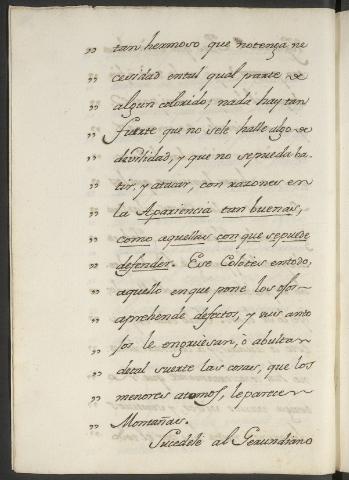 " tan hermoso que no tenga ne
" cesidad en tal qual parte de
" algun colorido; nada hay tan
" fuerte que no sele halle algo de
" devilidad, y que no sepueda ba-
" tir, y atacar, con razones en
" la Apariencia tan buenas,
" como aquellas con que sepuede
" defender. Ese Colotes entodo,
" aquello en que pone los ojos
" aprehende defectos, y sus anteo
" jos le engruesan, ò abultan
" detal suerte las cosas, que los
" menores atomos, leparecen
" Montañas.
Sucedele al Gerundiano